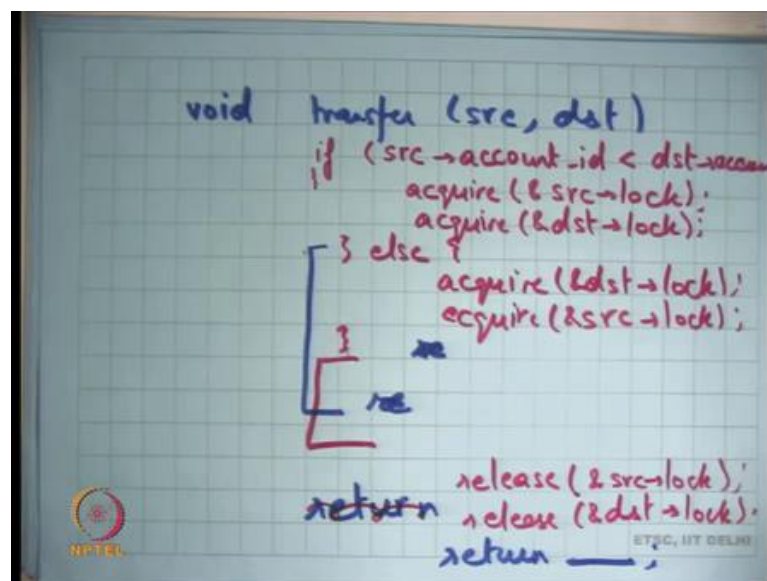 void transfer (src, dst)
if (src→account_id < dst→accoun
{
acquire (& src→lock);
acquire (&dst→lock);
} else {
acquire (&dst→lock);
acquire (&src→lock);
}
release (& src→lock);
return release (&dst→lock).
return ___;
NPTEL
ETSC, IIT DELHI